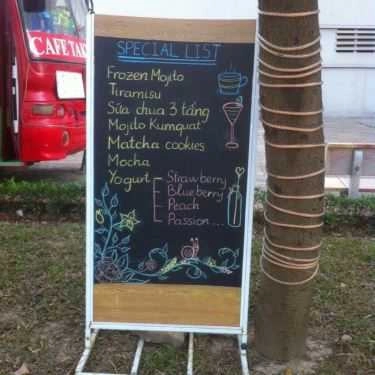 CAFE TA
SPECIAL LIST
Frozen Mojito
Tiramisu
Sữa chua 3 tầng
Mojito Kumquat
Matcha cookies
Mocha
Yogurt Strawberry
Blueberry
Peach
Passion...